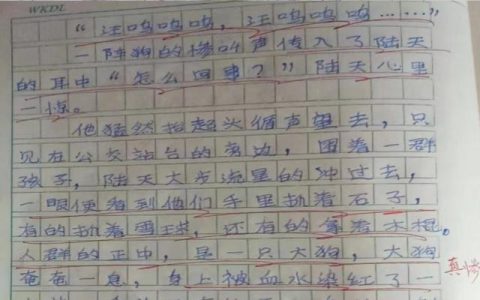 WKDL
“汪呜呜呜，汪呜呜呜……”
一阵狗的惨叫声传入了陆天
的耳中“怎么回事？”陆天心里
一惊。
他猛然抬起头循声望去，只
见在公交站台的旁边，围着一群
孩子，陆天大步流星的冲过去，
一眼便看到他们手里抓着石子，
有的执着雪球，还有的拿着木棍。
人群的正中，是一只大狗，大狗
奄奄一息，身上被血水染红了一
真惨